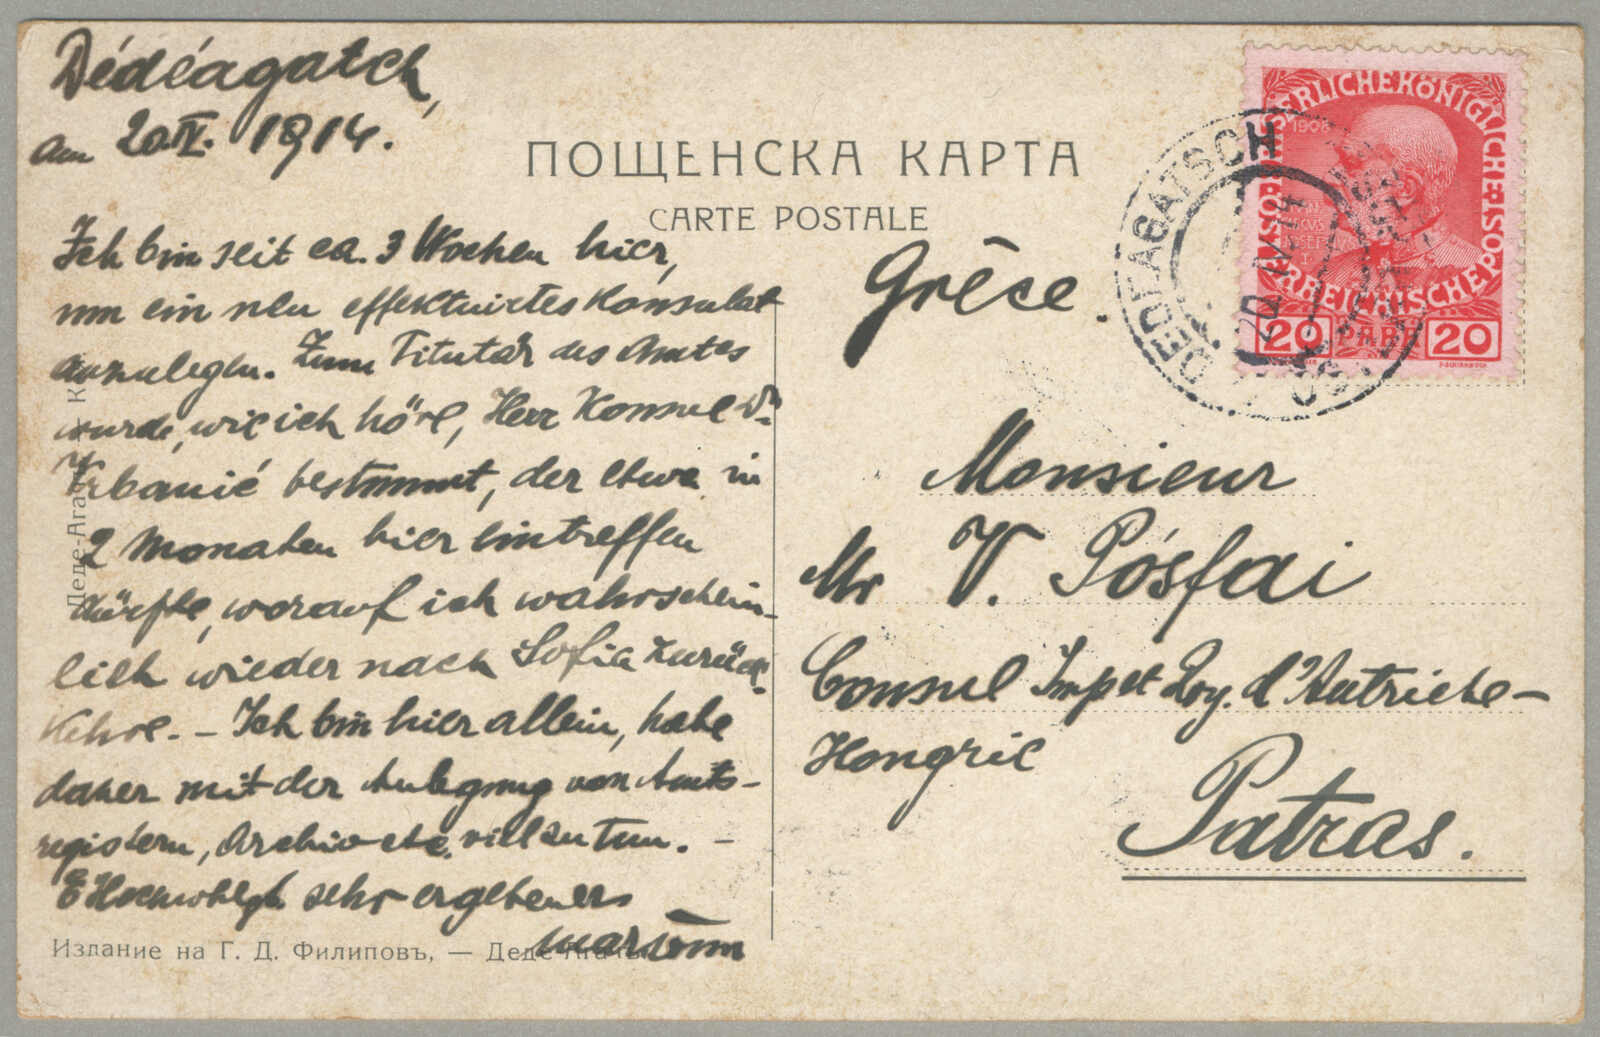 Dédéagatch,
am 20.IV. 1914.
ПОЩЕНСКА КАРТА
CARTE POSTALE
Ich bin seit ca. 3 Wochen hier,
um ein neu effektuirtes Konsulat
anzulegen. Zum Titulär des Amtes
wurde, wie ich höre, Herr Konsul Dr
Vrbanić bestimmt, der etwa in
2 Monaten hier eintreffen
dürfte, worauf ich wahrschein-
lich wieder nach Sofia zurück-
kehre. – Ich bin hier allein, habe
daher mit der Anlegung von Amts-
registern, Archiv etc. viel zu tun. –
E Hochwohlgb sehr ergebener
Издание на Г. Д. Филиповъ, — Деде-Агачъ
Деде-Агач
Grèce.
Monsieur
Mr V. Pósfai
Consul Imp et Roy. d'Autriche-
Hongrie
Patras.
KAISERLICHE KÖNIGLICHE ÖSTERREICHISCHE POST
1908
20 PARA 20
DEDEAGATSCH
20 IV 14